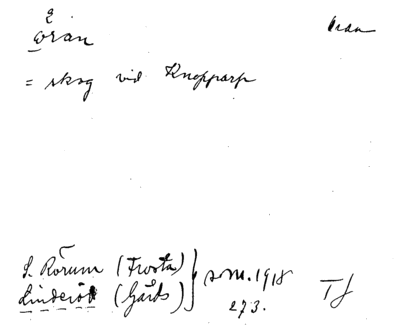 öran
= skog vid Knopparp
S. Rörum (Frosta)
Linderöd (Gärds) } som. 1918
273.